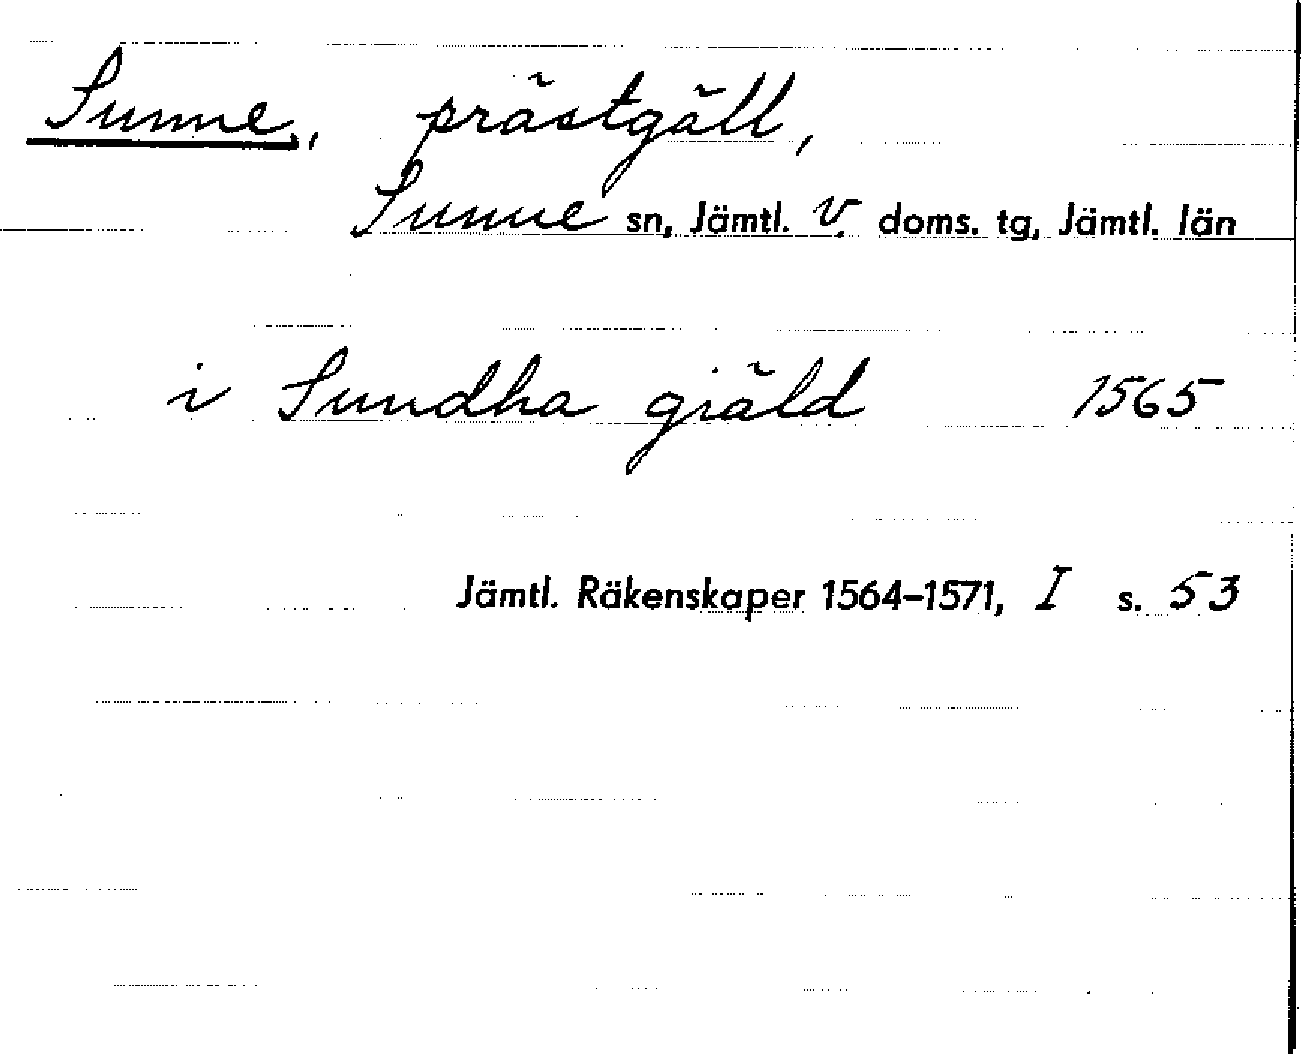 Sunne, prästgäll,
Sunne sn, Jämtl. V. doms. tg, Jämtl. län
i Sundha giäld 1565
Jämtl. Räkenskaper 1564-1571, I s. 53